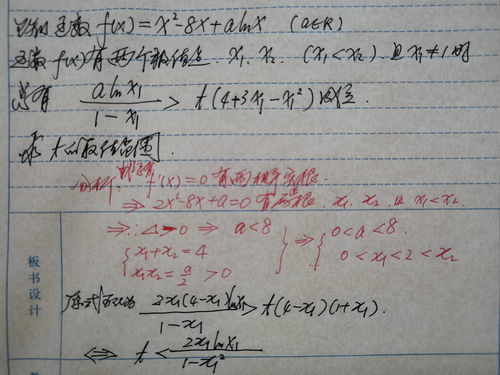 已知函数 f(x)=x²-8x+alnx (a∈R)
函数 f(x)有两个极值点 x₁, x₂. (x₁<x₂). 且 x₁≠1时
总有 alnx₁/(1-x₁) > t(4+3x₁-x₁²) 成立.
求 t的取值范围.
分析: f'(x)=0 有两相异实根
⇒ 2x²-8x+a=0 有两根. x₁, x₂ 且 x₁<x₂.
⇒ ∴ Δ>0 ⇒ a<8
{ x₁+x₂=4
x₁x₂=a/2 >0 } ⇒ { 0<a<8
0<x₁<2<x₂
板书设计
原式 2x₁(4-x₁)lnx₁/(1-x₁) > t(4-x₁)(1+x₁).
⇔ t < 2x₁lnx₁/(1-x₁²)